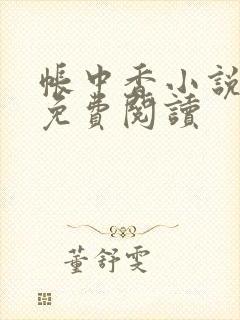 帳中香小說
免費閱讀
董舒雯